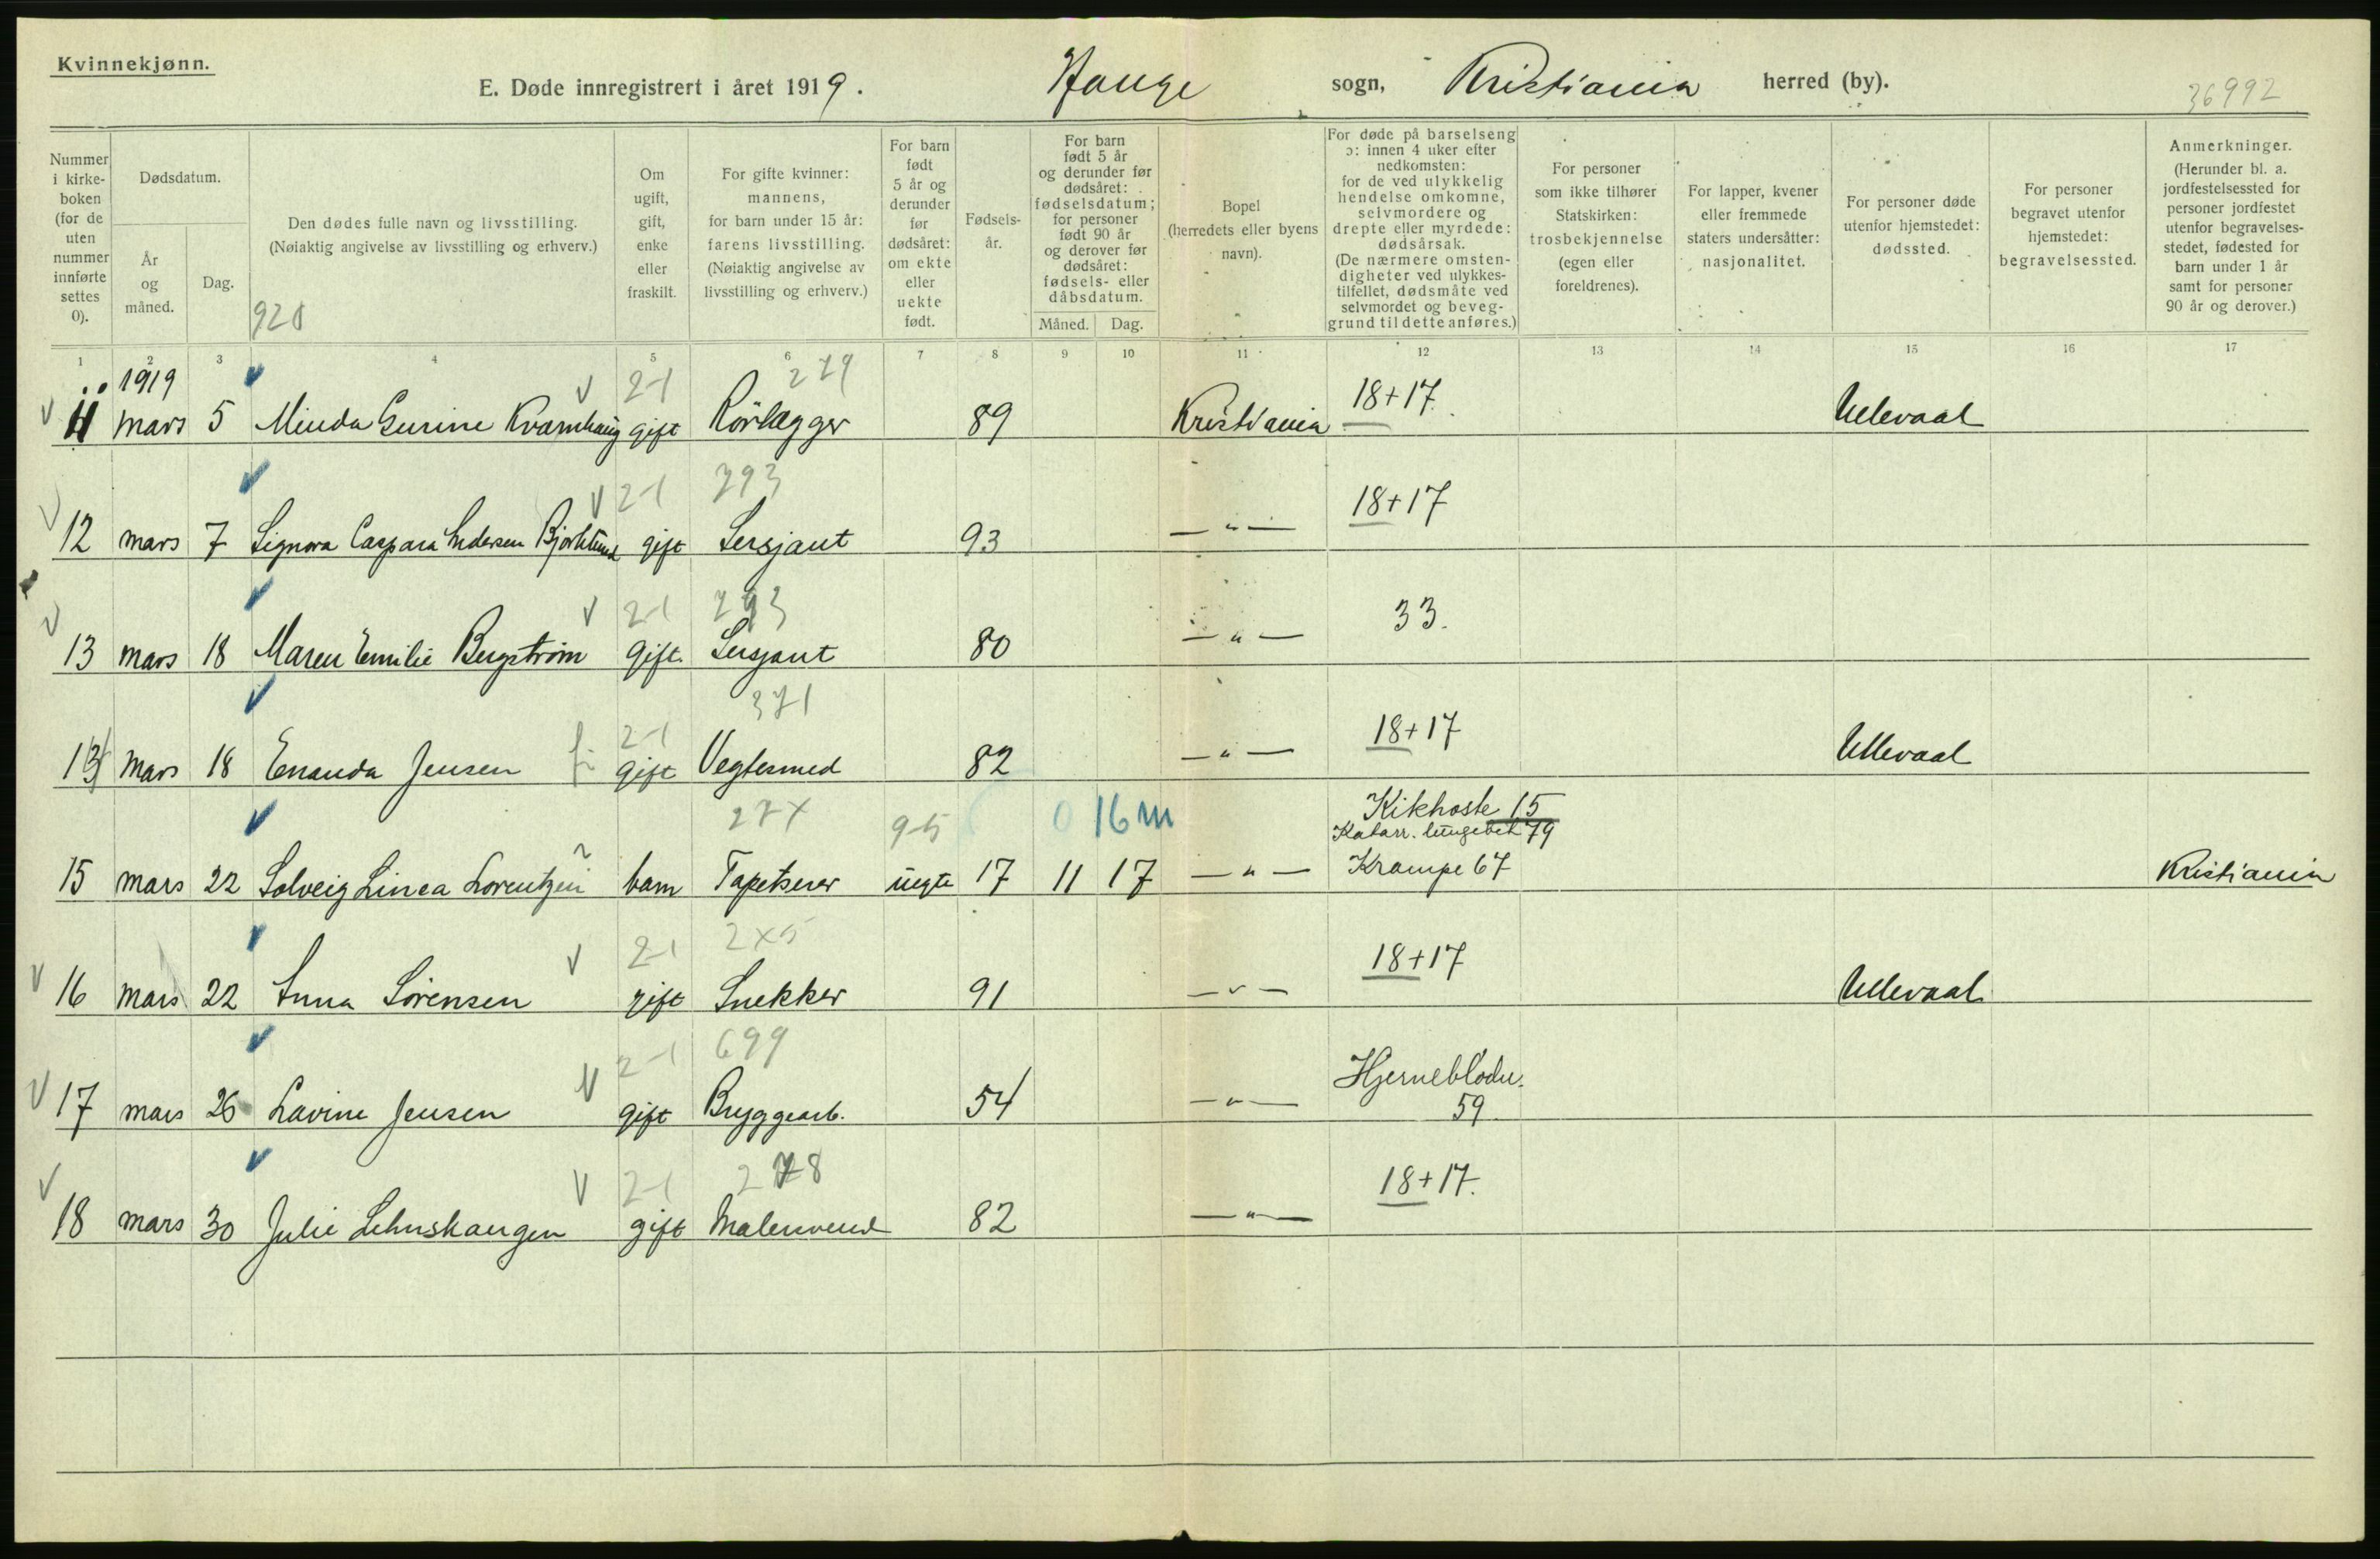 Kvinnekjønn.
E. Døde innregistrert i året 1919. Hauge sogn, Kristiania herred (by). 36992
Nummer i kirkeboken (for de uten nummer innførte settes 0).
Dødsdatum.
År og måned.
Dag.
Den dødes fulle navn og livsstilling.
(Nøiaktig angivelse av livsstilling og erhverv.)
920
Om ugift, gift, enke eller fraskilt.
For gifte kvinner: mannens, for barn under 15 år: farens livsstilling. (Nøiaktig angivelse av livsstilling og erhverv.)
For barn født 5 år og derunder før dødsåret: om ekte eller uekte født.
Fødselsår.
For barn født 5 år og derunder før dødsåret: fødselsdatum; for personer født 90 år og derover før dødsåret: fødsels- eller dåbsdatum.
Måned. Dag.
Bopel (herredets eller byens navn).
For døde på barselseng ɔ: innen 4 uker efter nedkomsten: for de ved ulykkelig hendelse omkomne, selvmordere og drepte eller myrdede: dødsårsak. (De nærmere omstendigheter ved ulykkestilfellet, dødsmåte ved selvmordet og beveggrund til dette anføres.)
For personer som ikke tilhører Statskirken: trosbekjennelse (egen eller foreldrenes).
For lapper, kvener eller fremmede staters undersåtter: nasjonalitet.
For personer døde utenfor hjemstedet: dødssted.
For personer begravet utenfor hjemstedet: begravelsessted.
Anmerkninger. (Herunder bl. a. jordfestelsessted for personer jordfestet utenfor begravelsesstedet, fødested for barn under 1 år samt for personer 90 år og derover.)
1 2 3 4 5 6 7 8 9 10 11 12 13 14 15 16 17
1919 2-1 279
11 mars 5 Minda Gurine Kvarnhaug gift Rörlægger 89 Kristiania 18+17. Ullevaal
2-1 793
12 mars 7 Signora Caspara Andersen Bjørklund gift Sersjant 93 — " — 18+17
2-1 793
13 mars 18 Maren Emilie Bergstrøm gift. Sersjant 80 — " — 33.
2-1 371
13 mars 18 Enanda Jensen gift Vegtesmed 82 — " — 18+17 Ullevaal
27x 95 0 16 m Kikhoste 15
Katarr. lungebet 79
15 mars 22 Solveig Linea Lorentzen barn Tapetserer uegte 17 11 17 — " — Krampe 67 Kristiania
2-1 2x5
16 mars 22 Anna Sörensen gift Snekker 91 — " — 18+17 Ullevaal
2-1 699
17 mars 26 Lavine Jensen gift Bryggearb. 54 — " — Hjerneblødn. 59
2-1 278
18 mars 30 Julie Lehnskaugen gift Malersvend 82 — " — 18+17.